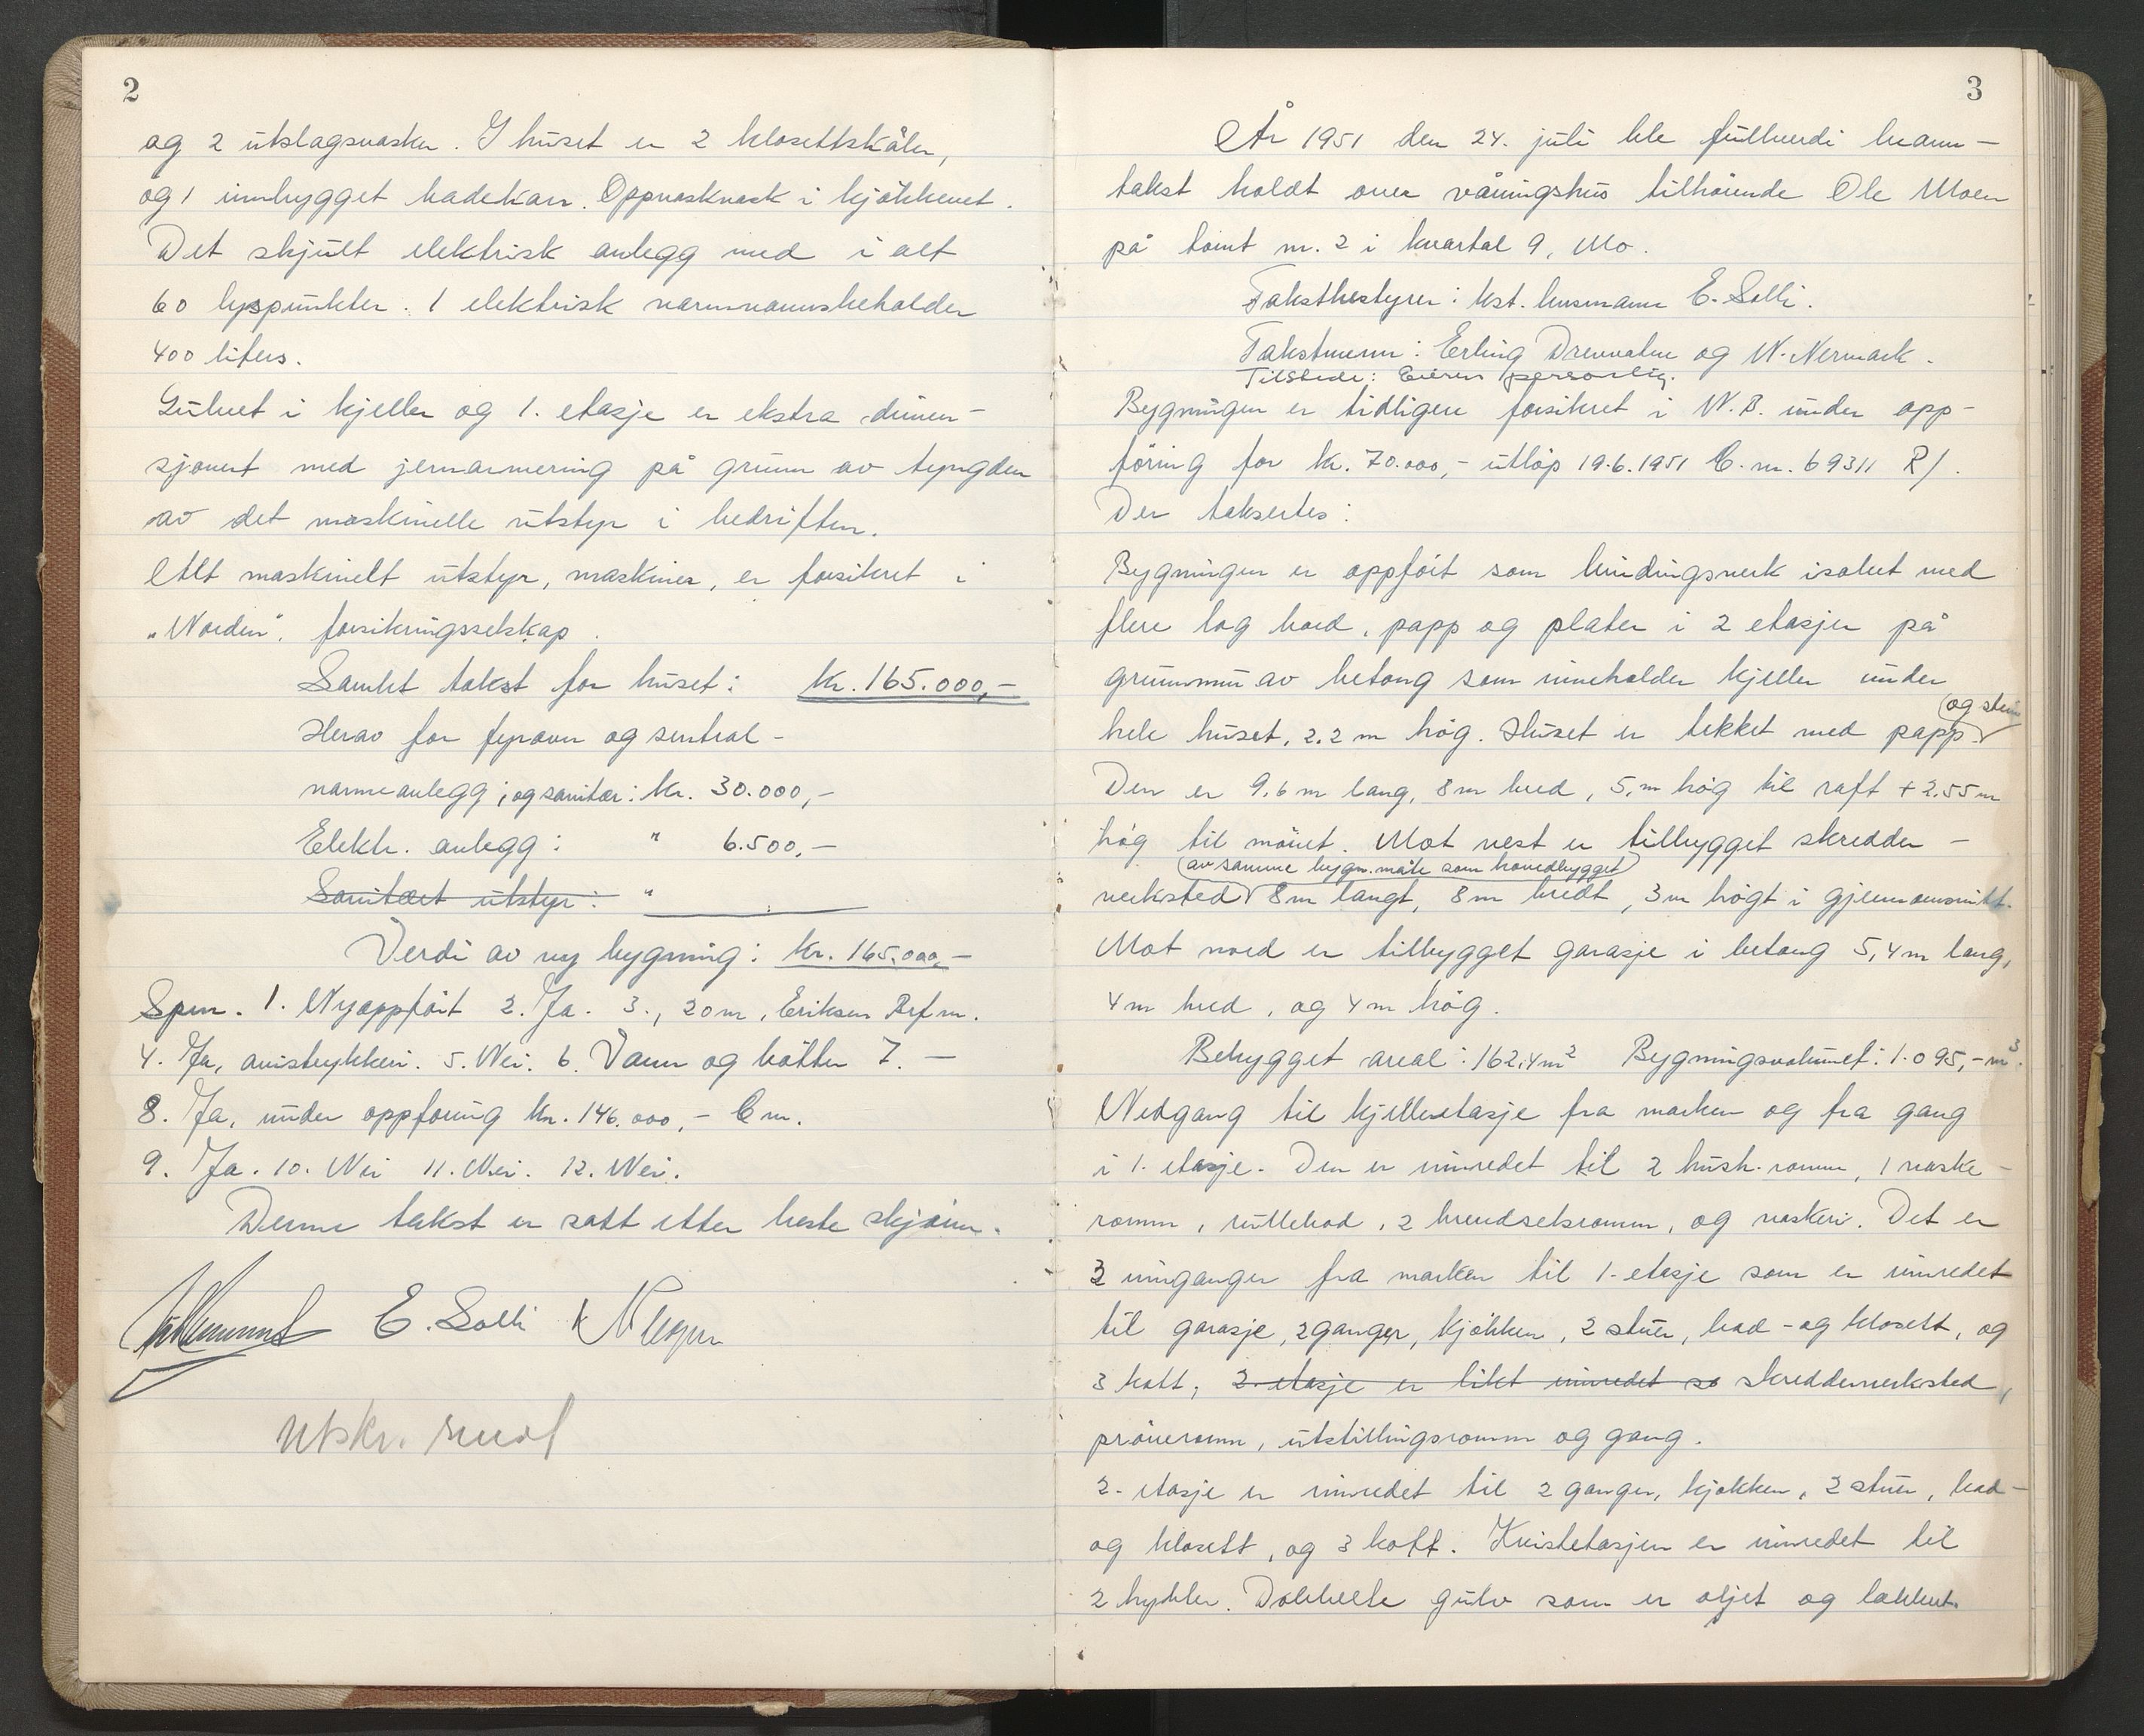 2
og 2 utslagsvasker. I huset er 2 klosettskåler,
og 1 innbygget badekarr. Oppvaskvask i kjökkenet.
Det skjult elektrisk anlegg med i alt
60 lyspunkter. 1 elektrisk varmvannsbeholder
400 liters.
Gulvet i kjeller og 1. etasje er ekstra dimen-
sjonert med jernarmering på grunn av tyngden
av det maskinelle utstyr i bedriften.
Alt maskinelt utstyr, maskiner, er forsikret i
"Norden". forsikringsselskap.
Samlet takst for huset: kr. 165.000,-
Herav for fyrovn og sentral-
varmeanlegg, og sanitær: kr. 30.000,-
Elektr. anlegg: " 6.500,-
Sanitært utstyr: "
Verdi av ny bygning: kr. 165.000,-
Spm. 1. Nyoppfört 2. Ja. 3., 20 m, Eriksen Ref m.
4. Ja, avistrykkeri. 5. Nei. 6. Vann og bötter 7. —
8. Ja, under oppföring kr. 146.000,- C m.
9. Ja. 10. Nei 11. Nei. 12. Nei.
Denne takst er satt etter beste skjönn.
E. Solli
Utskr. sendt
3
År 1951 den 24. juli ble fullverdi brann-
takst holdt over våningshus tilhörende Ole Moen
på tomt nr. 2 i kvartal 9, Mo.
Takstbestyrer: kst. lensmann E. Solli.
Takstmenn: Erling Drevvatne og N. Nermark.
Tilstede: Eieren personlig.
Bygningen er tidligere forsikret i N. B. under opp-
föring for kr. 70.000,- utlöp 19.6.1951 C. nr. 69311 R/.
Der takseertes:
Bygningen er oppfört som bindingsverk isolert med
flere lag bord, papp og plater i 2 etasjer på
grunnmur av betong som inneholder kjeller under
og stein
hele huset, 2.2 m hög. Huset er tekket med papp.
Den er 9.6 m lang, 8 m bred, 5, m hög til raft + 2.55 m
hög til mönet. Mot vest er tilbygget skredder-
av samme bygn.måte som hovedbygget
verksted 8 m langt, 8 m bredt, 3 m högt i gjennomsnitt.
Mot nord er tilbygget garasje i betong 5,4 m lang,
4 m bred, og 4 m hög.
Bebygget areal: 162.4 m² Bygningsvolumet: 1.095,- m³.
Nedgang til kjelleretasje fra marken og fra gang
i 1. etasje. Den er innredet til 2 hush.romm, 1 vaske-
romm, rullebod, 2 brendselsromm, og vaskeri. Det er
3 innganger fra marken til 1. etasje som er innredet
til garasje, 2 ganger, kjökken, 2 stuer, bad- og klosett, og
3 kott, 2. etasje er likt innredet so skredderverksted,
pröveromm, utstillingsromm og gang.
2. etasje er innredet til 2 ganger, kjökken, 2 stuer, bad-
og klosett, og 3 kott. Kvistetasjen er innredet til
2 hybler. Dobbelte gulv som er oljet og lakkert.